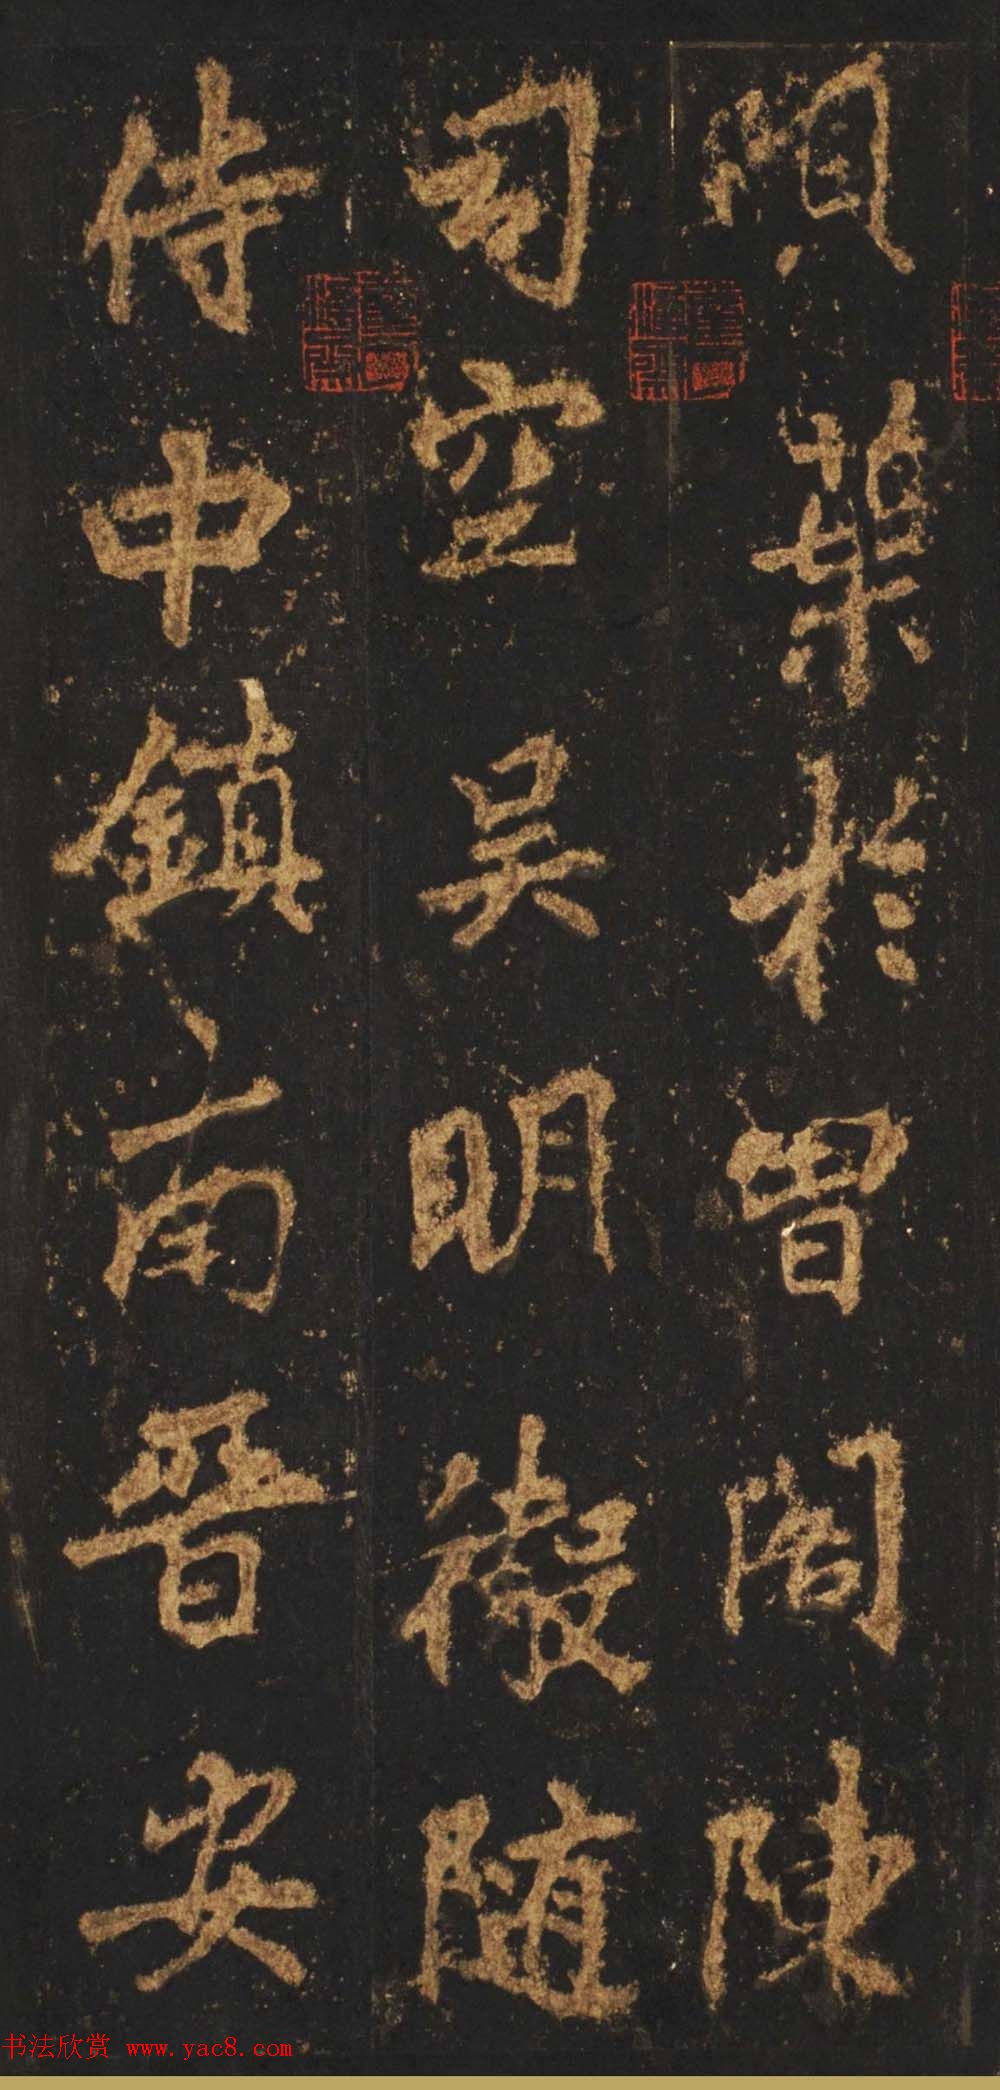 葉於曾閣陳
司空吳明徹隨
侍中鎮南晉安
书法欣赏 www.yac8.com